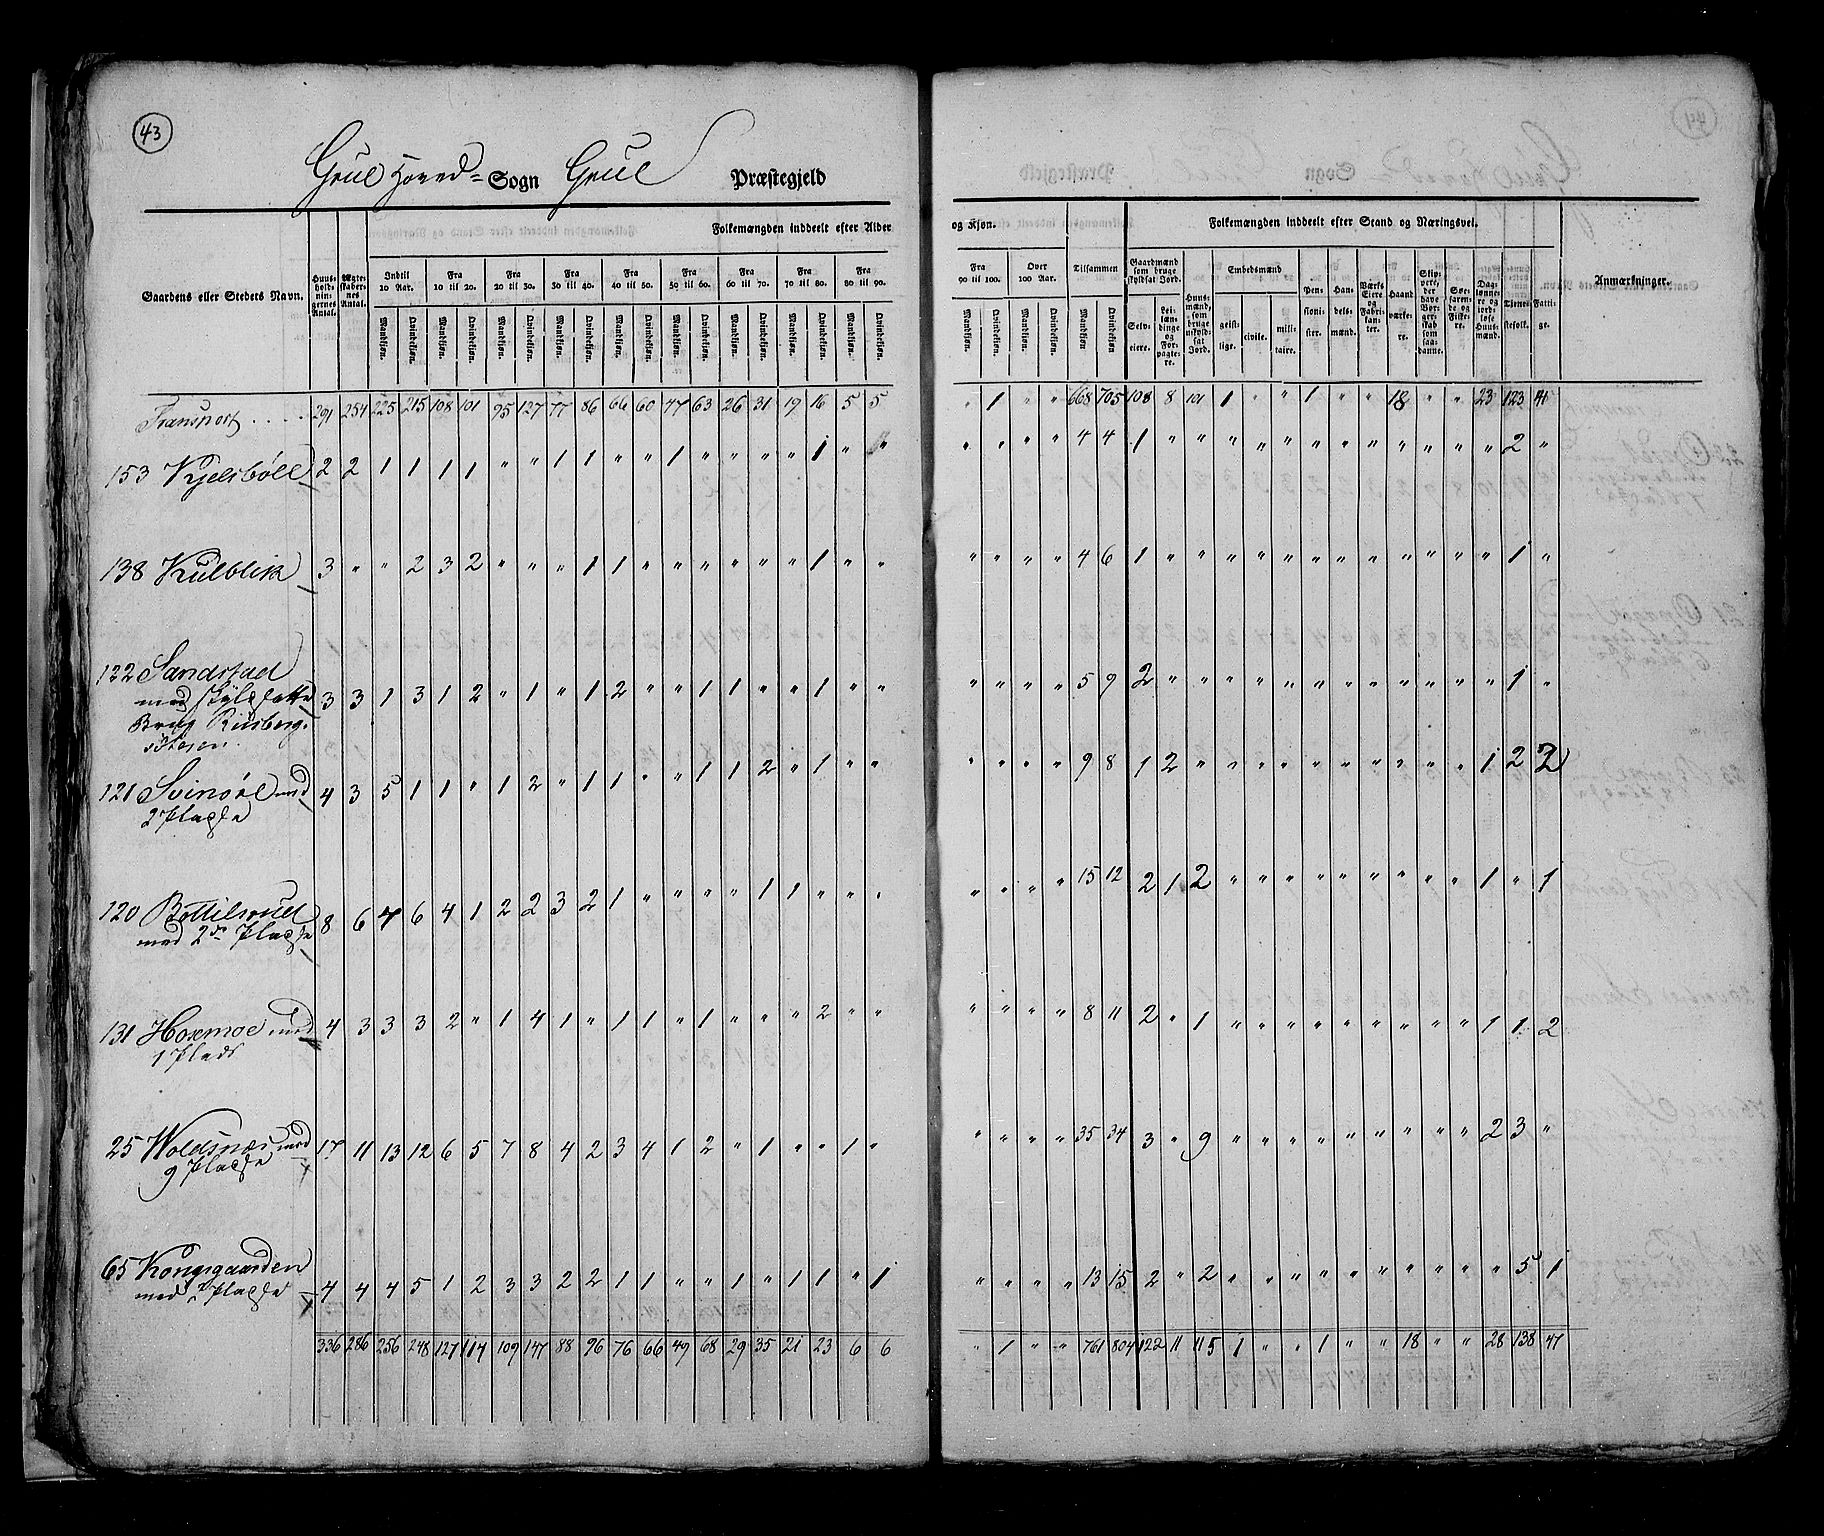 43
Grue Hoved= Sogn Grue Præstegjeld
Gaardens eller Stedets Navn.
Huus-holdnin-gernes Antal.
Ægte-skaber-nes Antal.
Folkemængden inddeelt efter Alder
og Kjøn.
Indtil 10 Aar. Fra 10 til 20. Fra 20 til 30. Fra 30 til 40. Fra 40 til 50. Fra 50 til 60. Fra 60 til 70. Fra 70 til 80. Fra 80 til 90.
Fra 90 til 100. Over 100 Aar. Tilsammen
Mandkjøn. Qvindekjøn.
Folkemængden inddeelt efter Stand og Næringsvei.
Gaardmænd som bruge skyldsat Jord.
Selv-eiere. Lei-læn-dinge og For-pagte-re.
Huus-mænd, som bruge uskyld-sat Jord.
Embedsmænd
geist-lige. civile. mili-taire.
Pen-sioni-ster. Han-dels-mænd. Værks Eiere og Fabri-kan-ter. Haand værke-re.
Skip-pere, der have Bor-ger-skab som saa-danne.
Søe-faren-de og Fiske-re.
Dag-lønne-re og jord-løse Huus-mænd.
Tjene-stefolk. Fatti-ge.
Anmærkninger.
Transport .... 291 254 225 215 108 101 95 127 77 86 66 60 47 63 26 31 19 16 5 5 " 1 " " 668 705 108 8 101 1 " " 1 " " 18 " " 23 123 44
153 Kjelsbøll 2 2 1 1 1 1 " " 1 1 " " 1 " " " " 1 " " " " " " 4 4 1 " " " " " " " " " " " " 2 "
138 Kulblik 3 " " 2 3 2 " " " 1 1 " " " " " " 1 " " " " " " 4 6 1 " " " " " " " " " " " " 1 "
122 Sandstad
med skyldsatte 3 3 1 3 1 2 " 1 " 1 2 " " 1 1 " " 1 " " " " " " 5 9 2 " " " " " " " " " " " " 1 "
Brug Riisberg-
121 Svinøe med 4 3 5 1 1 " 1 2 " 1 1 " " 1 1 2 " 1 " " " " " " 9 8 1 2 " " " " " " " " " " 1 2 2
2 Pladse
120 Bottilsrud 8 6 4 6 4 1 2 2 3 2 1 " " " " 1 1 " " " " " " " 15 12 2 1 2 " " " " " " " " " 1 " 1
med 2de Pladse
131 Hoxmoe med 4 3 3 3 2 " 1 4 1 " 1 1 " 1 " " " 2 " " " " " " 8 11 2 " 1 " " " " " " " " " 1 1 2
1 Plads
25 Woldsnæs med 17 11 13 12 6 5 7 8 4 2 3 4 1 2 " 1 " " 1 " " " " " 35 34 3 " 9 " " " " " " " " " 2 3 "
9 Pladse
65 Kongsgaarden
med 2 Pladse 4 4 4 5 1 2 3 3 2 2 1 1 " " 1 " 1 1 " 1 " " " " 13 15 2 " 2 " " " " " " " " " " 5 1
336 286 256 248 127 114 109 147 88 96 76 66 49 68 29 35 21 23 6 6 " 1 " " 761 804 122 11 115 1 " " 1 " " 18 " " 28 138 47